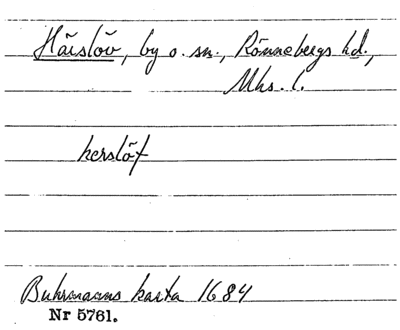 Härslöv, by o. sn., Rönnebergs hd.,
Mhs. l.
herslöf
Buhrmanns karta 1684
Nr 5761.